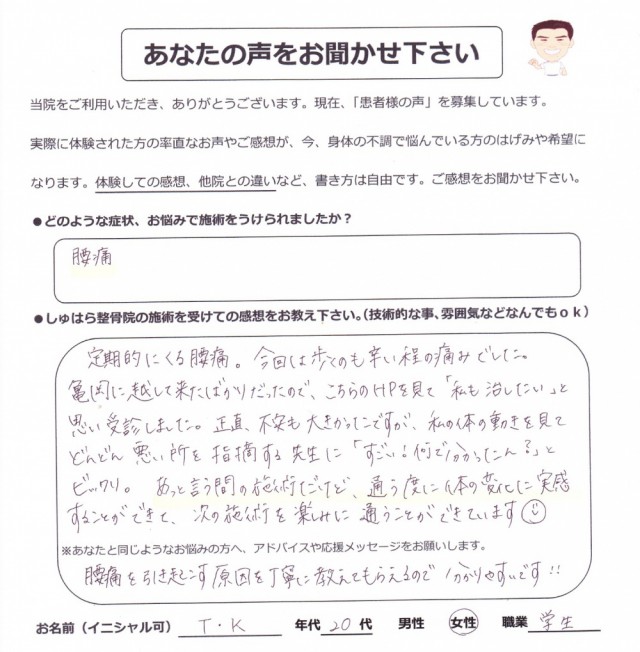 あなたの声をお聞かせ下さい
当院をご利用いただき、ありがとうございます。現在、「患者様の声」を募集しています。
実際に体験された方の率直なお声やご感想が、今、身体の不調で悩んでいる方のはげみや希望に
なります。体験しての感想、他院との違いなど、書き方は自由です。ご感想をお聞かせ下さい。
●どのような症状、お悩みで施術をうけられましたか？
腰痛
●しゅはら整骨院の施術を受けての感想をお教え下さい。（技術的な事、雰囲気などなんでもｏｋ）
定期的にくる腰痛。今回は歩くのも辛い程の痛みでした。
亀岡に越して来たばかりだったので、こちらのHPを見て「私も治したい」と
思い受診しました。正直、不安も大きかったですが、私の体の動きを見て
どんどん悪い所を指摘する先生に「すごい！何で分からはったん？」と
ビックリ。あっと言う間の施術だけど、通う度に体の変化に実感
することができて、次の施術を楽しみに通うことができています
※あなたと同じようなお悩みの方へ、アドバイスや応援メッセージをお願いします。
腰痛を引き起こす原因を丁寧に教えてもらえるので分かりやすいです!!
お名前（イニシャル可） T・K 年代 20 代 男性 女性 職業 学生